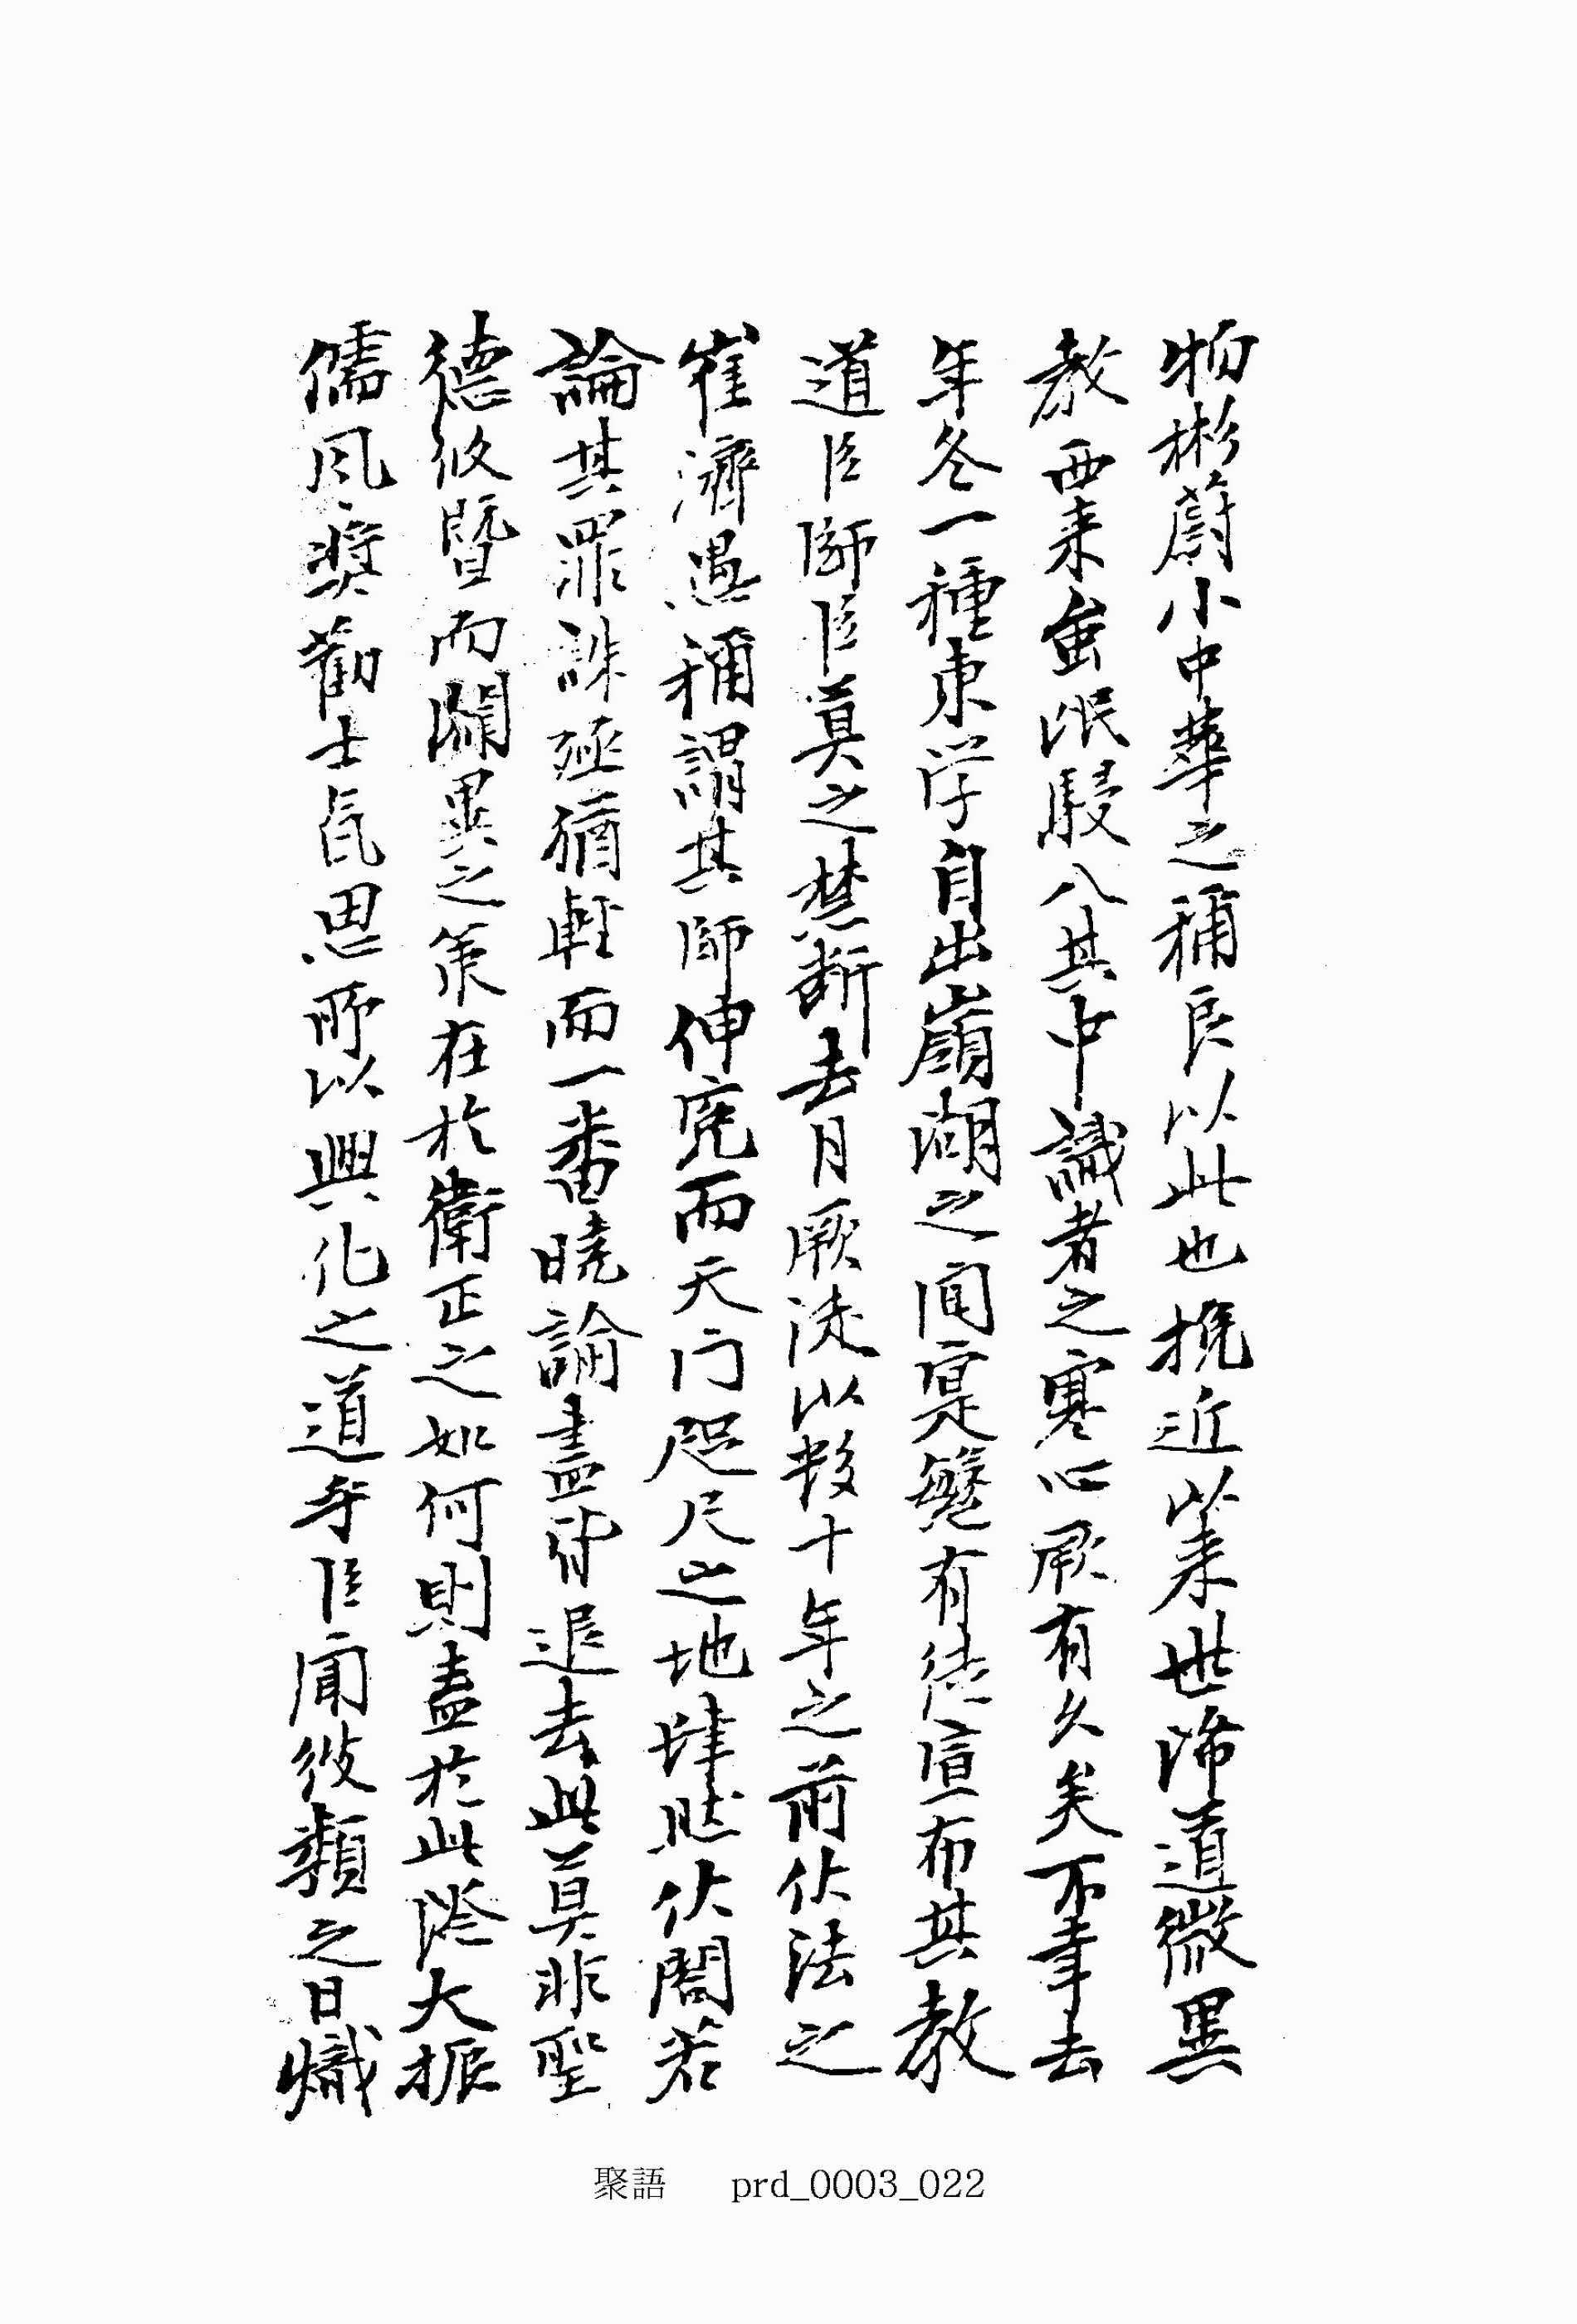 物彬蔚小中華之稱良以此也挽近以来世降道微異
教西来蚩泯駸入其中識者之寒心厥有久矣不幸去
年冬一種東学自出嶺湖之间寔繁有徒宣布其教
道臣師臣莫之禁断去月厥徒以数十年之前伏法之
崔濟愚稱謂其師伸寃而天门咫尺之地肆然伏閤若
論其罪誅殛猶軽而一番曉諭盡皆退去此莫非聖
德攸曁而闢異之策在於衛正之如何則盍於此際大振
儒风奨勸士民思所以興化之道乎臣聞彼類之日熾
聚語 prd_0003_022